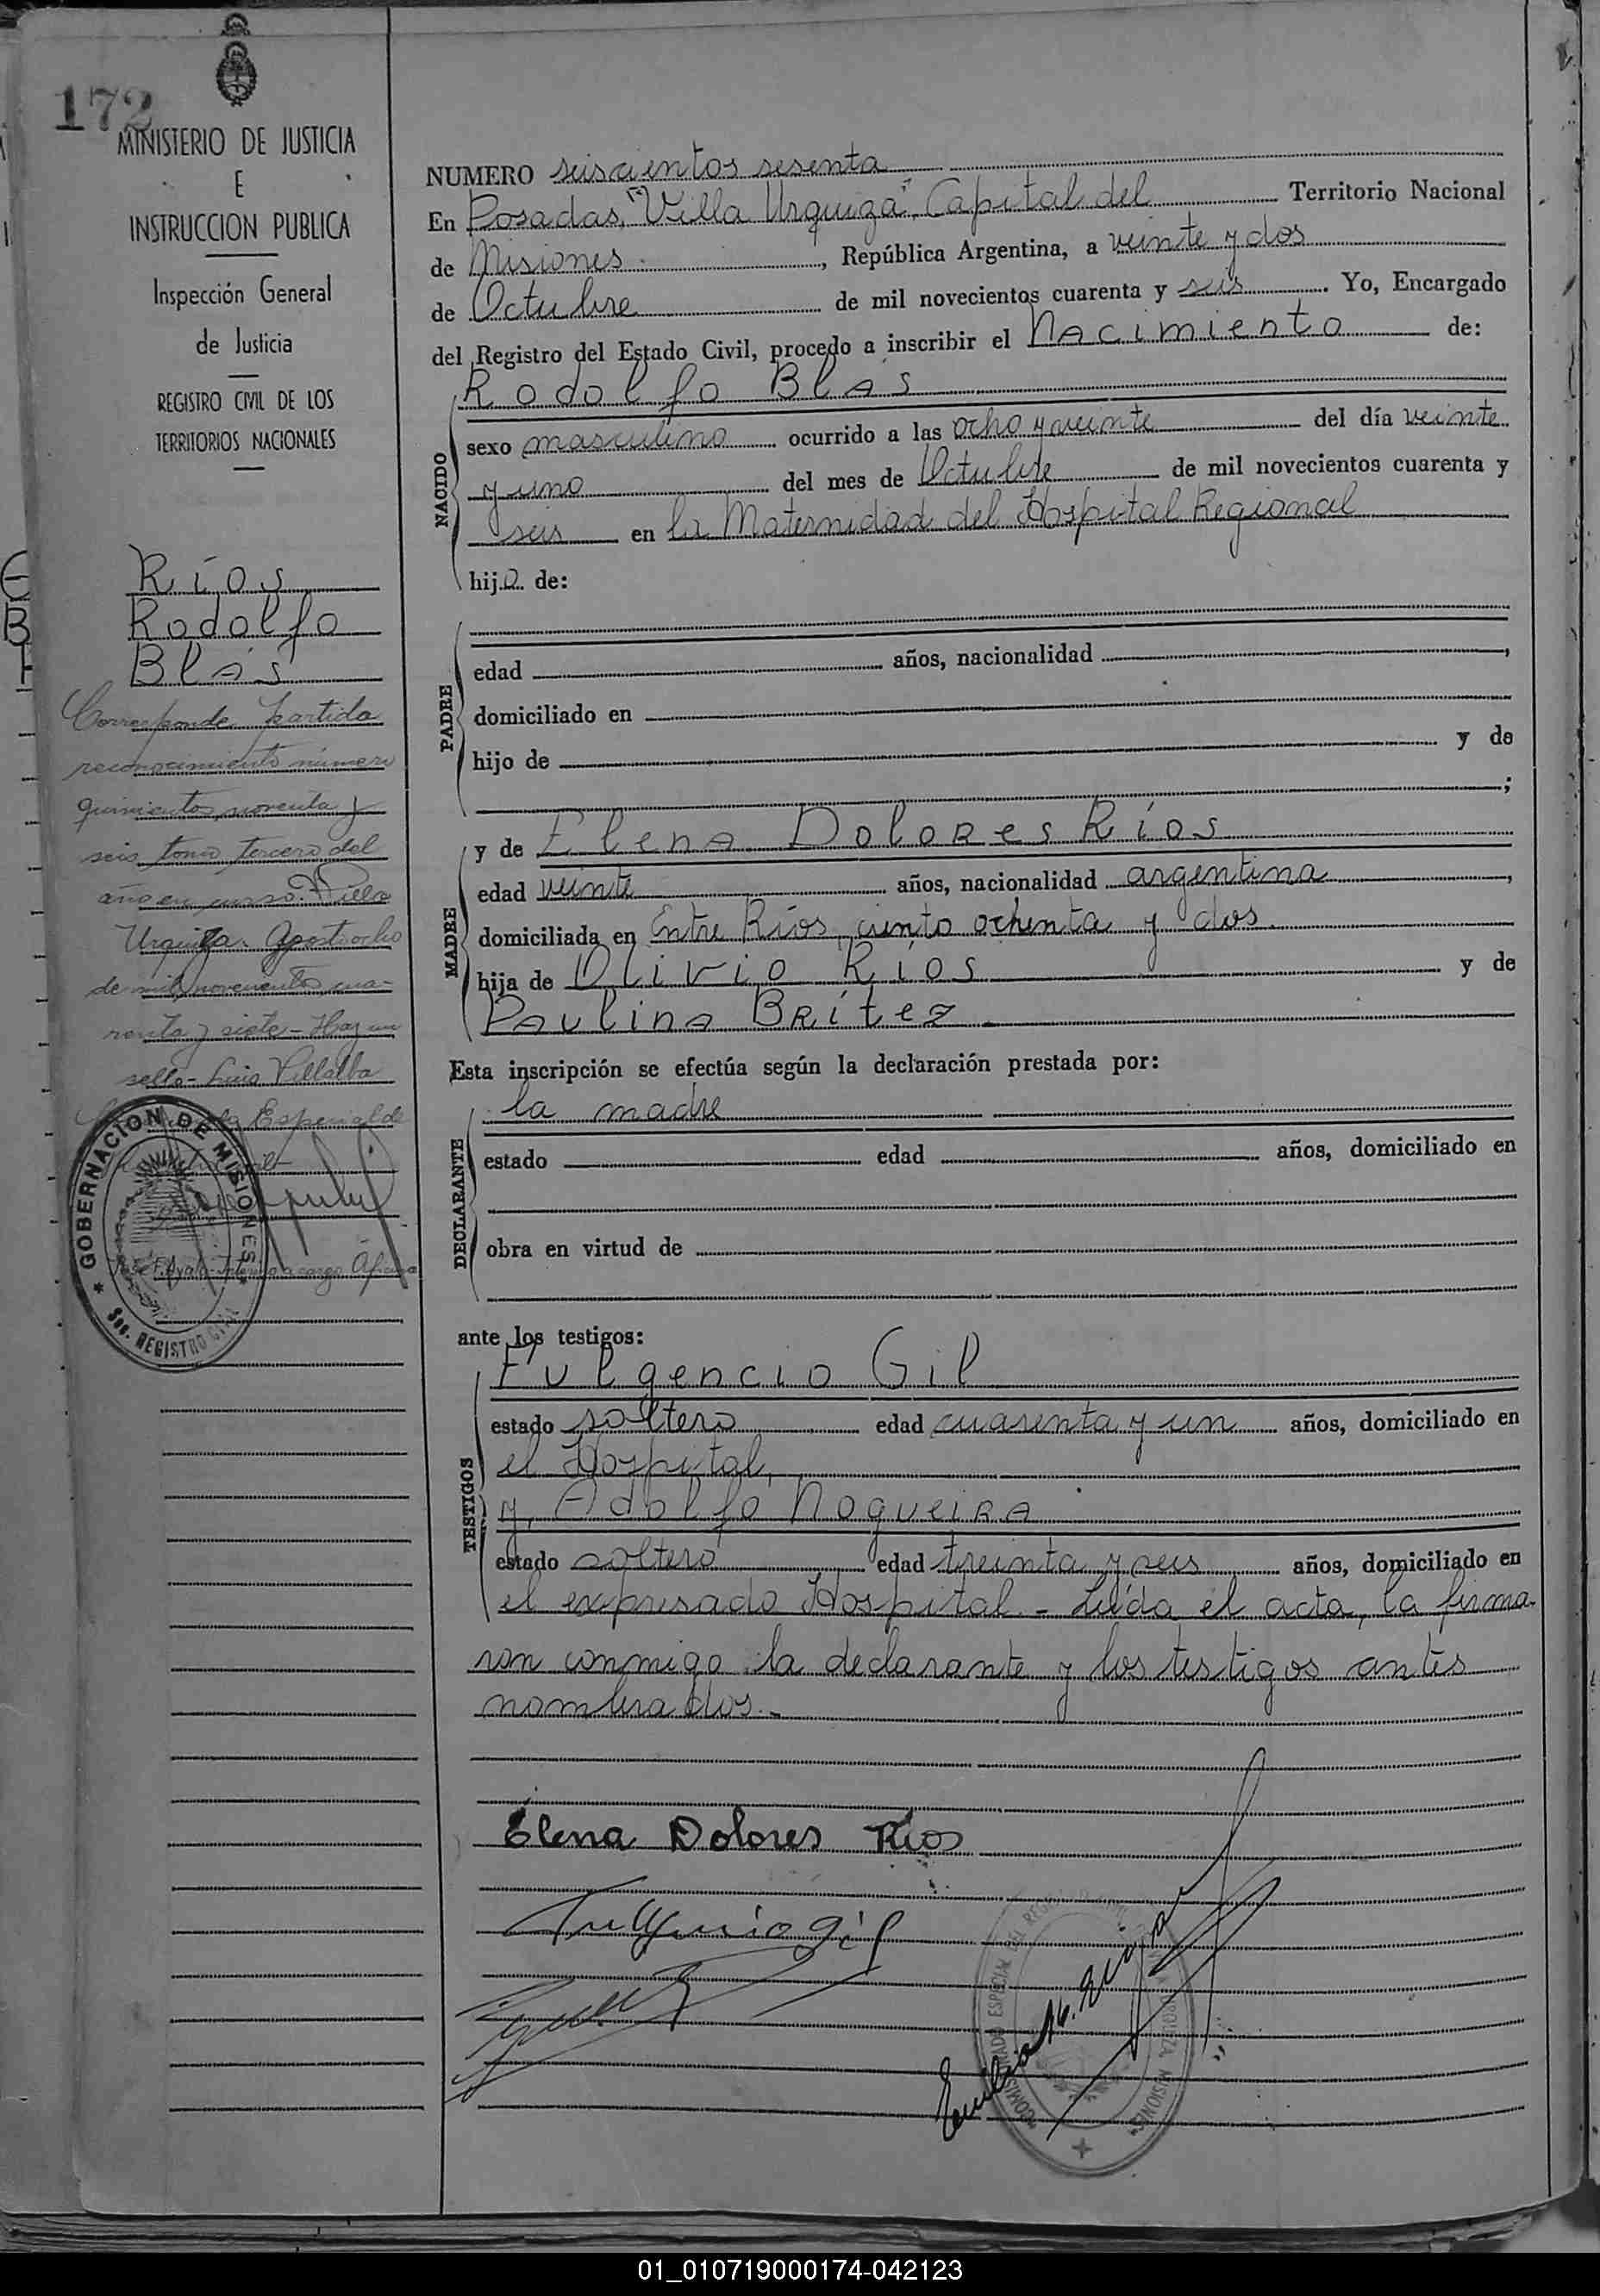 172
MINISTERIO DE JUSTICIA
E
INSTRUCCION PUBLICA
Inspección General
de Justicia
REGISTRO CIVIL DE LOS
TERRITORIOS NACIONALES
Ríos
Rodolfo
Blas
Corresponde partida
reconocimiento número
quinientos noventa y
seis tomo tercero del
año en curso. Villa
Urquiza. Agosto ocho
de mil novecientos cua-
renta y siete - Hay un
sello - Luis Villalba
Especial de
GOBERNACION DE MISIONES
Sec. REGISTRO CIVIL
NUMERO seiscientos sesenta
En Posadas, "Villa Urquiza", Capital del Territorio Nacional
de Misiones, República Argentina, a veinte y dos
de Octubre de mil novecientos cuarenta y seis. Yo, Encargado
del Registro del Estado Civil, procedo a inscribir el Nacimiento de:
NACIDO
Rodolfo Blas
sexo masculino ocurrido a las ocho y veinte del día veinte
y uno del mes de Octubre de mil novecientos cuarenta y
seis en la Maternidad del Hospital Regional
hijo de:
PADRE
edad años, nacionalidad ,
domiciliado en
hijo de y de
;
MADRE
y de Elena Dolores Ríos
edad veinte años, nacionalidad argentina,
domiciliada en Entre Ríos, ciento ochenta y dos.
hija de Olivio Ríos y de
Paulina Brítez.
Esta inscripción se efectúa según la declaración prestada por:
DECLARANTE
la madre
estado edad años, domiciliado en
obra en virtud de
ante los testigos:
TESTIGOS
Fulgencio Gil
estado soltero edad cuarenta y un años, domiciliado en
el Hospital,
y, Adolfo Nogueira
estado soltero edad treinta y seis años, domiciliado en
el expresado Hospital. - Leída el acta, la firma-
ron conmigo la declarante y los testigos antes
nombrados.-
Elena Dolores Ríos
Fulgencio Gil
01_010719000174-042123